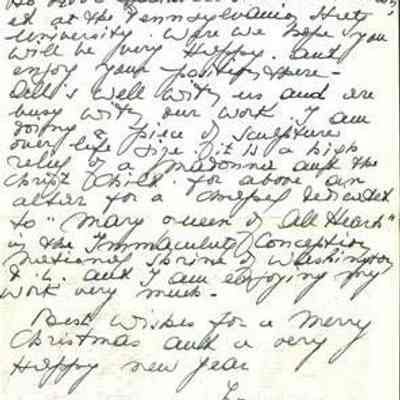 at the Pennsylvania State
University. Were we hope you
will be very Happy. and
enjoy your position there -
All's well with us and are
busy with our work. I am
doing a piece of sculpture
over life size. it is a high
relief of a Madonna and the
Christ Child. for above an
altar for a chapel dedicated
to "Mary Queen of All Hearts"
in the Immaculate Conception
National Shrine of Washington
D.C. and I am enjoying my
work very much -
Best wishes for a Merry
Christmas and a very
Happy New Year